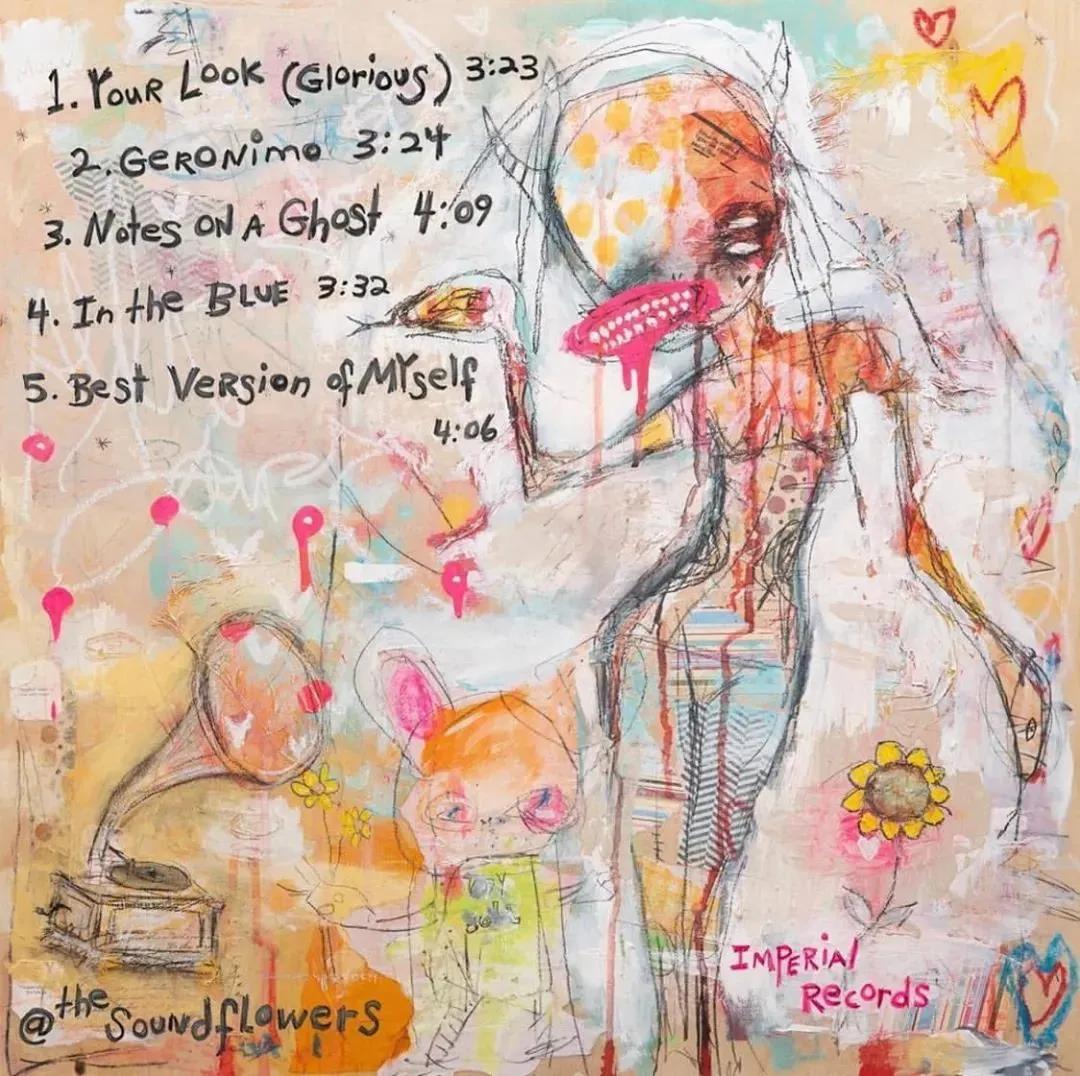 1. Your Look (Glorious) 3:23
2. Geronimo 3:24
3. Notes on a Ghost 4:09
4. In the Blue 3:32
5. Best Version of Myself
4:06
@the Soundflowers
Imperial
Records